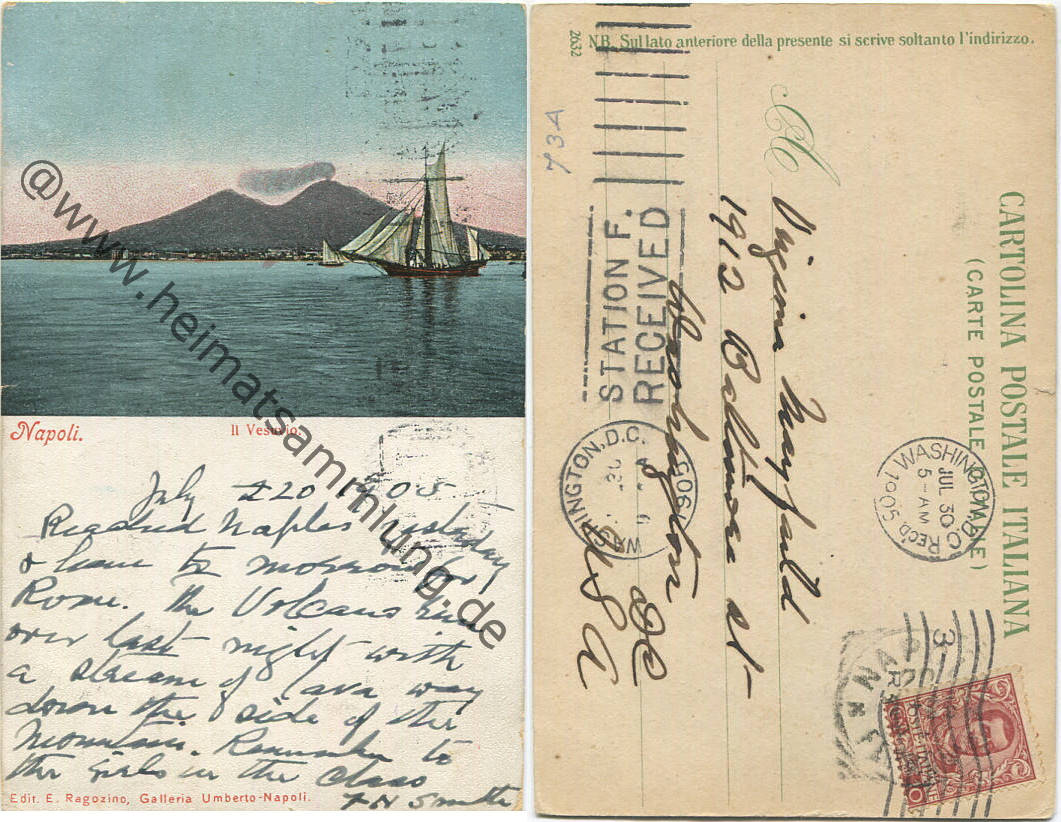 @www.heimatsammlung.de
Napoli.
Il Vesuvio.
July 20 1905
Reached Naples yesterday
& leave to morrow for
Rome. The Volcano
over last night with
a stream of lava way
down the side of the
Mountain. Remember to
the girls in the class
F H Smith
Edit. E. Ragozino, Galleria Umberto-Napoli.
2632 NB. Sul lato anteriore della presente si scrive soltanto l'indirizzo.
73A
CARTOLINA POSTALE ITALIANA
(CARTE POSTALE D'ITALIE)
A
Virginia
1912 Baltimore st
Washington DC
USA
STATION F.
RECEIVED
WASHINGTON, D.C.
1905
WASHINGTON, D.C.
JUL 30
5-AM
1905
REC'D.
NAPOLI
3